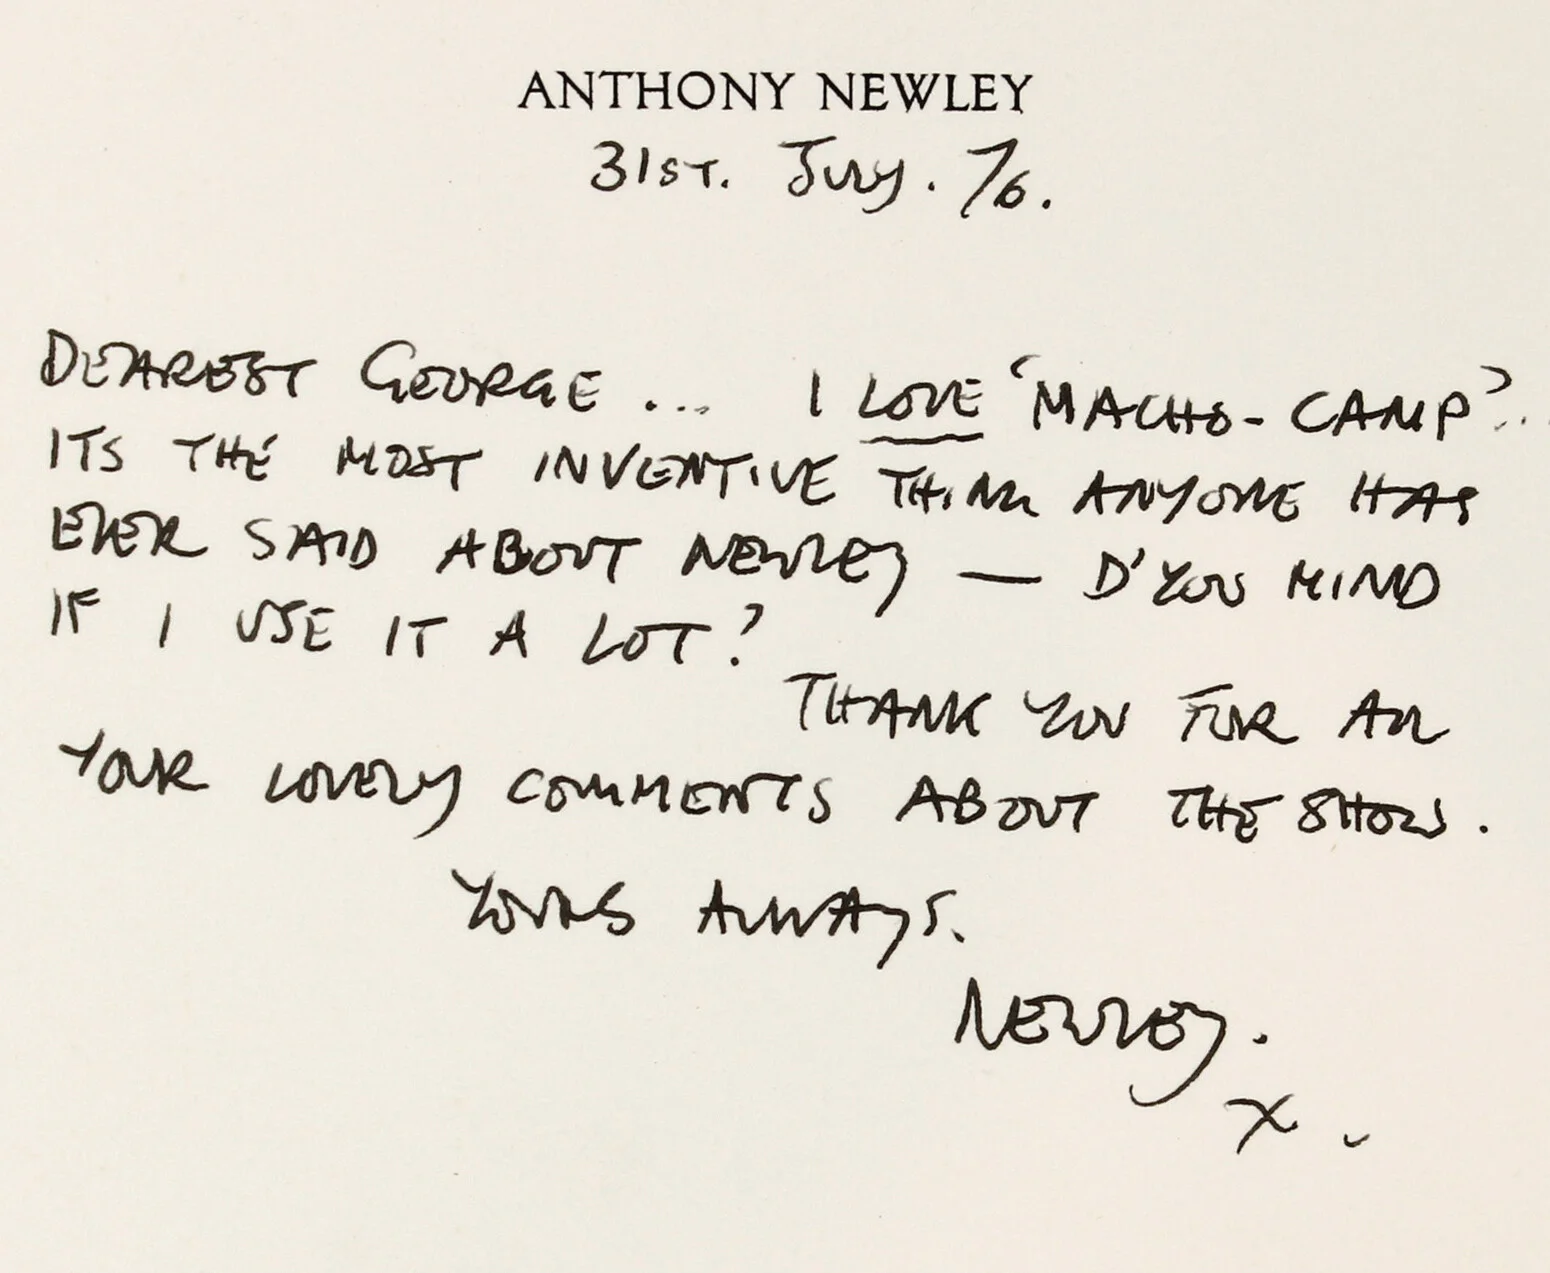 ANTHONY NEWLEY
31ST. JULY. 76.
DEAREST GEORGE ... I LOVE 'MACHO-CAMP'..
ITS THE MOST INVENTIVE THING ANYONE HAS
EVER SAID ABOUT NEWLEY — D'YOU MIND
IF I USE IT A LOT?
THANK YOU FOR ALL
YOUR LOVELY COMMENTS ABOUT THE SHOW.
YOURS ALWAYS.
NEWLEY.
X.